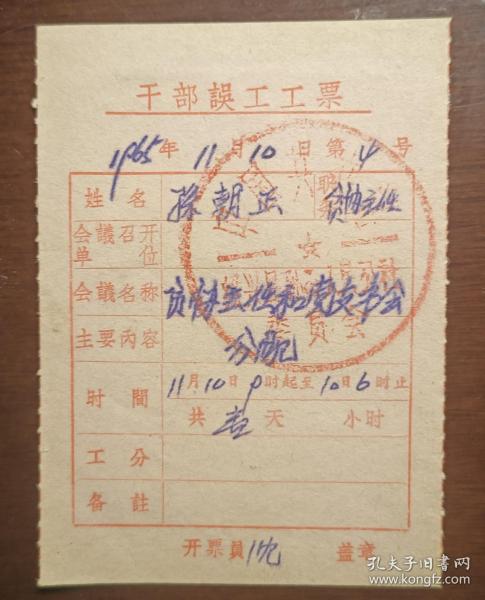 干部誤工工票
1965年 11月 10日 第 4 号
姓名 孫朝正 职务 貧协主任
会議召开单位
会議名称 貧协主任和党支书会
主要內容 分配
时間 11月10日9时起至10日6时止
共 壹 天 小时
工分
备註
开票員 沈 盖章
孔夫子旧书网
www.kongfz.com